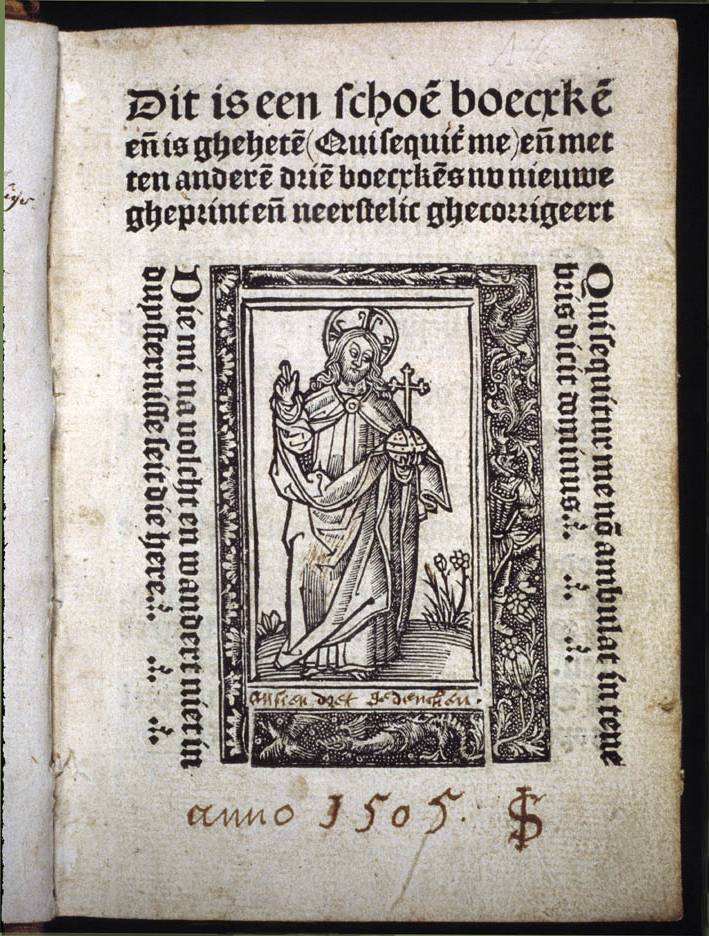 Dit is een schoē boecxkē
eñ is ghehetē (Qui sequit̄ me) eñ met
ten anderē driē boecxkēs nv nieuwe
gheprint eñ neerstelic ghecorrigeert
Die mi na volcht en wandert niet in
duysternisse seit die here.
Qui sequitur me nō ambulat in tene
bris dicit dominus.
anno 1505.